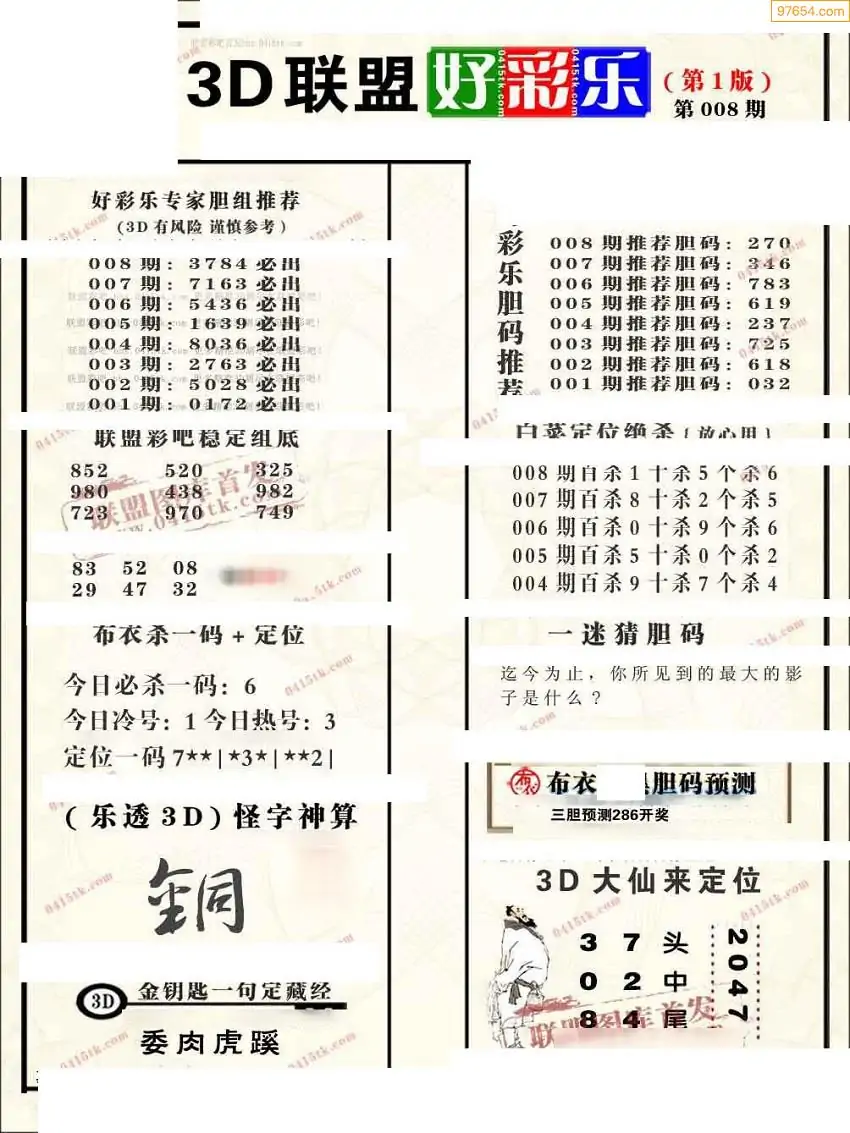 97654.com
3D联盟好彩乐
(第1版)
第008期
好彩乐专家胆组推荐
(3D有风险 谨慎参考)
008期: 3784必出
007期: 7163必出
006期: 5436必出
005期: 1639必出
004期: 8036必出
003期: 2763必出
002期: 5028必出
001期: 0172必出
联盟彩吧稳定组底
852 520 325
980 438 982
723 970 749
83 52 08
29 47 32
布衣杀一码+定位
今日必杀一码: 6
今日冷号: 1 今日热号: 3
定位一码7**|*3*|**2|
(乐透3D)怪字神算
3D 金钥匙一句定藏经
委肉虎蹊
彩乐胆码推荐
008期推荐胆码: 270
007期推荐胆码: 346
006期推荐胆码: 783
005期推荐胆码: 619
004期推荐胆码: 237
003期推荐胆码: 725
002期推荐胆码: 618
001期推荐胆码: 032
白菜定位绝杀(放心用)
008期百杀1十杀5个杀6
007期百杀8十杀2个杀5
006期百杀0十杀9个杀6
005期百杀5十杀0个杀2
004期百杀9十杀7个杀4
一迷猜胆码
迄今为止，你所见到的最大的影
子是什么?
布衣 胆码预测
三胆预测286开奖
3D大仙来定位
3 7 头
0 2 中
8 4 尾
2047
联盟图库首发
www.0415tk.com
0415tk.com